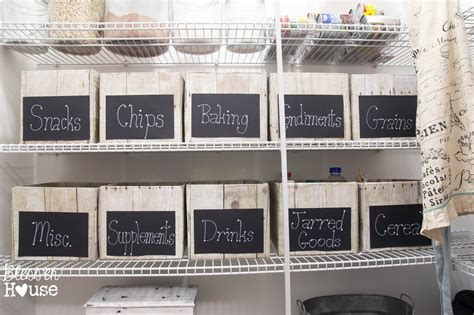 Snacks
Chips
Baking
ondiments
Grains
Misc.
Supplements
Drinks
Jarred
Goods
Cereal
Bless'er
House